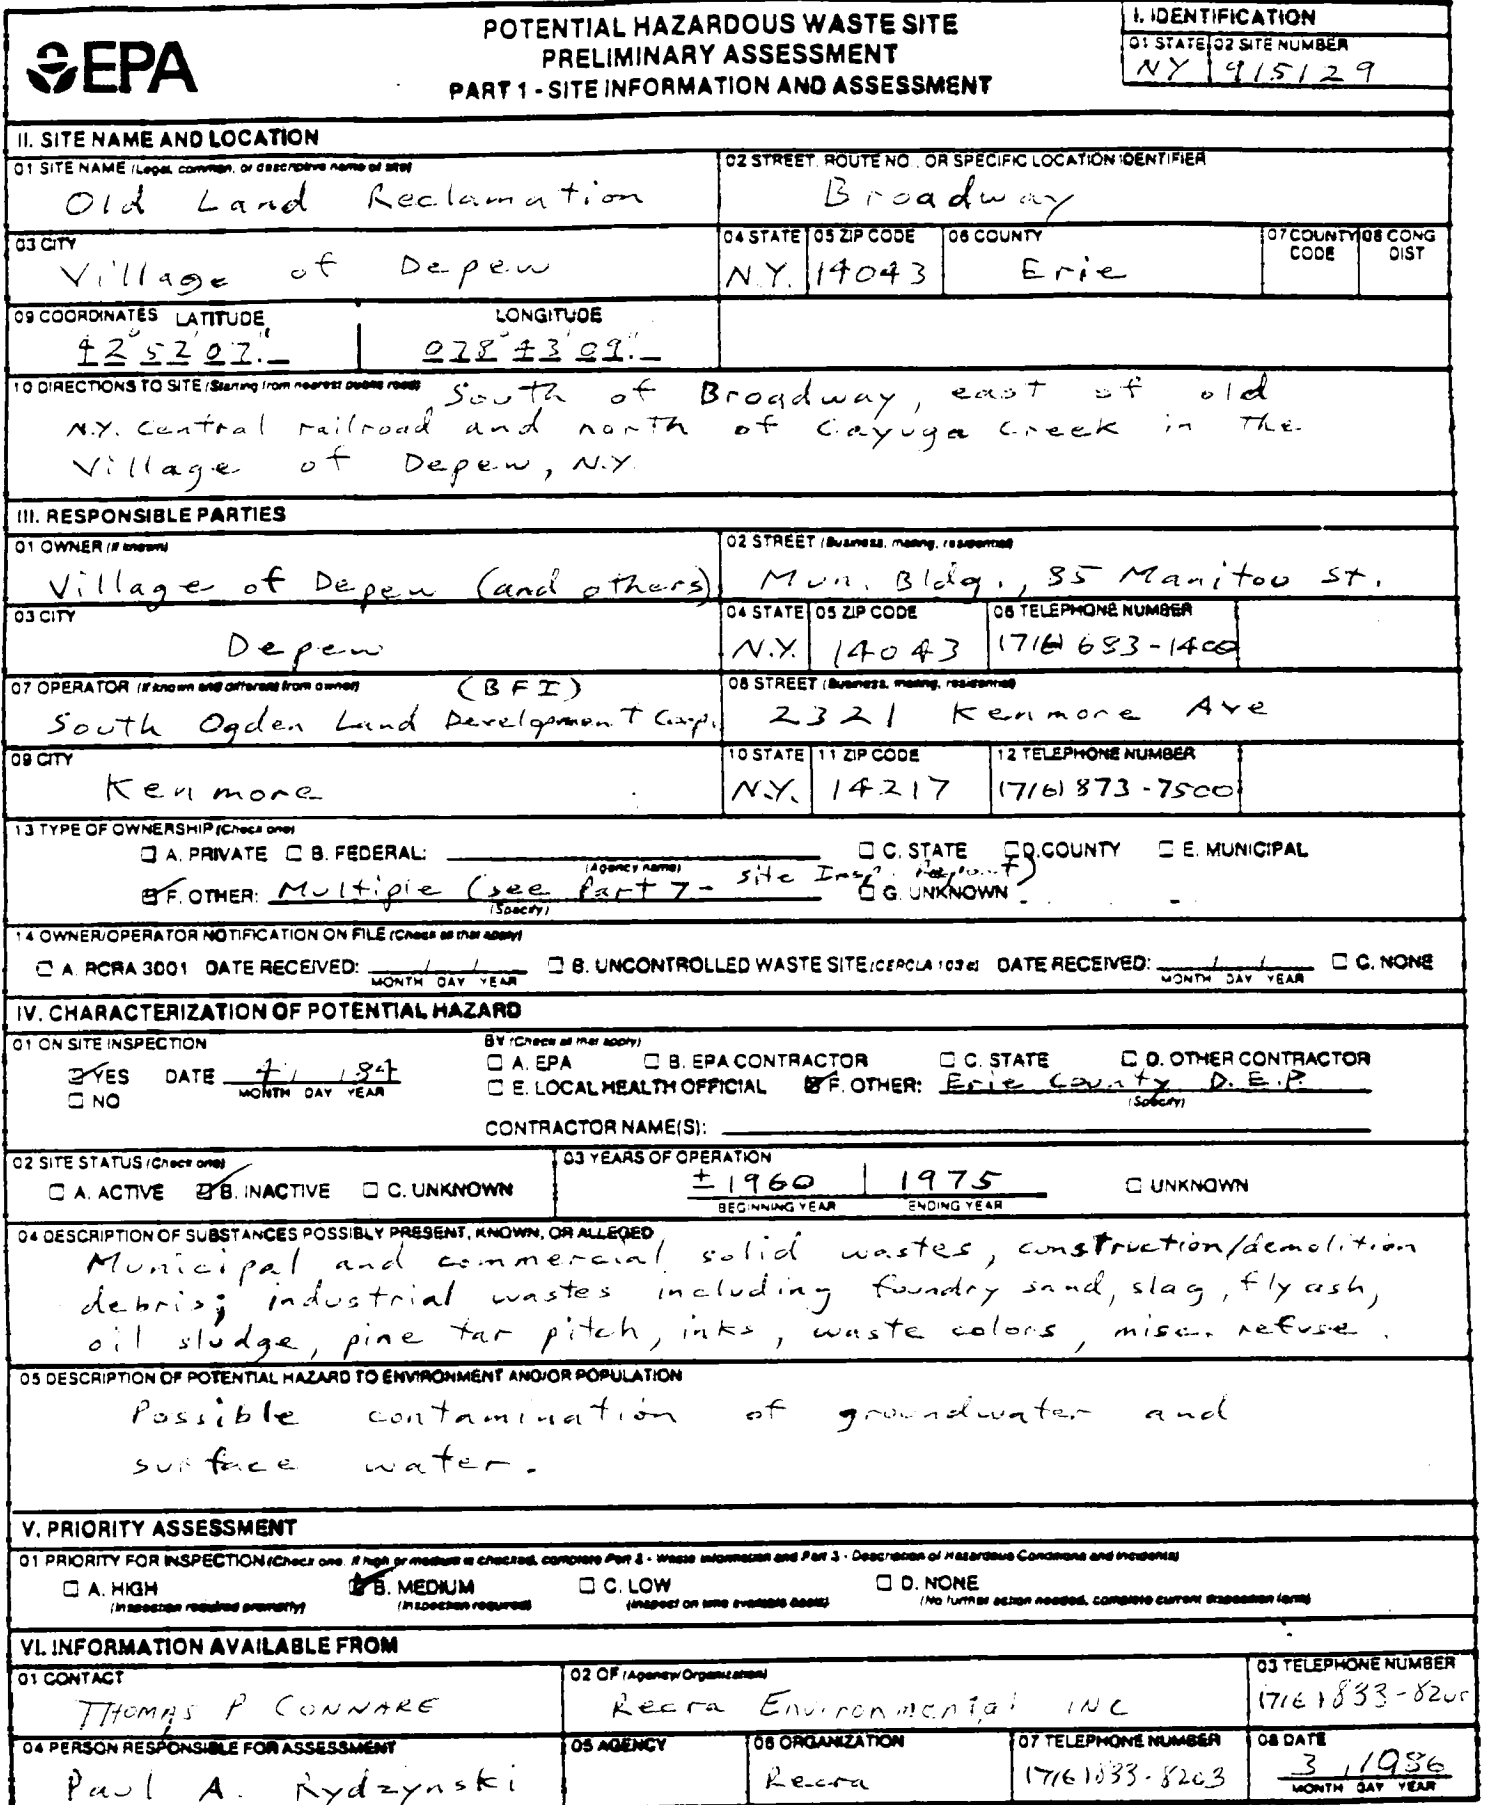 EPA
POTENTIAL HAZARDOUS WASTE SITE
PRELIMINARY ASSESSMENT
PART 1 - SITE INFORMATION AND ASSESSMENT
I. IDENTIFICATION
01 STATE 02 SITE NUMBER
NY 915129
II. SITE NAME AND LOCATION
01 SITE NAME (Legal, common, or descriptive name of site)
Old Land Reclamation
02 STREET, ROUTE NO., OR SPECIFIC LOCATION IDENTIFIER
Broadway
03 CITY
Village of Depew
04 STATE
N.Y.
05 ZIP CODE
14043
06 COUNTY
Erie
07 COUNTY CODE
08 CONG DIST
09 COORDINATES LATITUDE LONGITUDE
42° 52' 07."_ 078° 43' 09."_
10 DIRECTIONS TO SITE (Starting from nearest public road)
South of Broadway, east of old
N.Y. Central railroad and north of Cayuga Creek in the
Village of Depew, N.Y.
III. RESPONSIBLE PARTIES
01 OWNER (if known)
Village of Depew (and others)
02 STREET (Business, mailing, residential)
Mun. Bldg., 85 Manitou St.
03 CITY
Depew
04 STATE
N.Y.
05 ZIP CODE
14043
06 TELEPHONE NUMBER
(716) 683-1400
07 OPERATOR (if known and different from owner)
(BFI)
South Ogden Land Development Corp.
08 STREET (Business, mailing, residential)
2321 Kenmore Ave
09 CITY
Kenmore
10 STATE
N.Y.
11 ZIP CODE
14217
12 TELEPHONE NUMBER
(716) 873-7500
13 TYPE OF OWNERSHIP (Check one)
A. PRIVATE B. FEDERAL: (Agency name) C. STATE D. COUNTY E. MUNICIPAL
F. OTHER: Multiple (see Part 7 - Site Insp. Report) (Specify) G. UNKNOWN
14 OWNER/OPERATOR NOTIFICATION ON FILE (Check all that apply)
A. RCRA 3001 DATE RECEIVED: / / B. UNCONTROLLED WASTE SITE (CERCLA 103 c) DATE RECEIVED: / / C. NONE
MONTH DAY YEAR MONTH DAY YEAR
IV. CHARACTERIZATION OF POTENTIAL HAZARD
01 ON SITE INSPECTION
YES DATE 4/ /84
MONTH DAY YEAR
NO
BY (Check all that apply)
A. EPA B. EPA CONTRACTOR C. STATE D. OTHER CONTRACTOR
E. LOCAL HEALTH OFFICIAL F. OTHER: Erie County D.E.P.
(Specify)
CONTRACTOR NAME(S):
02 SITE STATUS (Check one)
A. ACTIVE B. INACTIVE C. UNKNOWN
03 YEARS OF OPERATION
±1960 1975
BEGINNING YEAR ENDING YEAR
UNKNOWN
04 DESCRIPTION OF SUBSTANCES POSSIBLY PRESENT, KNOWN, OR ALLEGED
Municipal and commercial solid wastes, construction/demolition
debris; industrial wastes including foundry sand, slag, fly ash,
oil sludge, pine tar pitch, inks, waste colors, misc. refuse.
05 DESCRIPTION OF POTENTIAL HAZARD TO ENVIRONMENT AND/OR POPULATION
Possible contamination of groundwater and
surface water.
V. PRIORITY ASSESSMENT
01 PRIORITY FOR INSPECTION (Check one. If high or medium is checked, complete Part 2 - Waste Information and Part 3 - Description of Hazardous Conditions and Incidents)
A. HIGH B. MEDIUM C. LOW D. NONE
(Inspection required promptly) (Inspection required) (Inspect on time available basis) (No further action needed, complete current disposition form)
VI. INFORMATION AVAILABLE FROM
01 CONTACT
THOMAS P CONNARE
02 OF (Agency/Organization)
Recra Environmental INC
03 TELEPHONE NUMBER
(716) 833-8203
04 PERSON RESPONSIBLE FOR ASSESSMENT
Paul A. Rydzynski
05 AGENCY
06 ORGANIZATION
Recra
07 TELEPHONE NUMBER
(716) 833-8203
08 DATE
3 / 1986
MONTH DAY YEAR